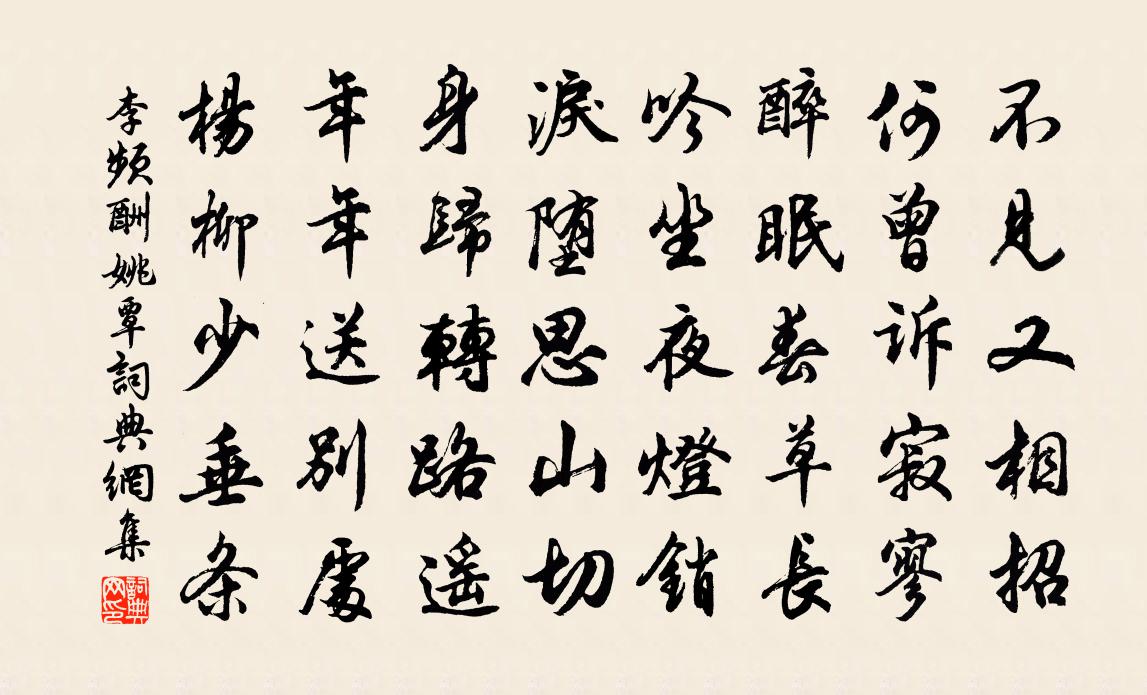 不見又相招
何曾訴寂寥
醉眠春草長
吟坐夜燈銷
淚墮思山切
身歸轉路遥
年年送別處
楊柳少垂条
李頻酬姚覃詞典網集
詞典網印